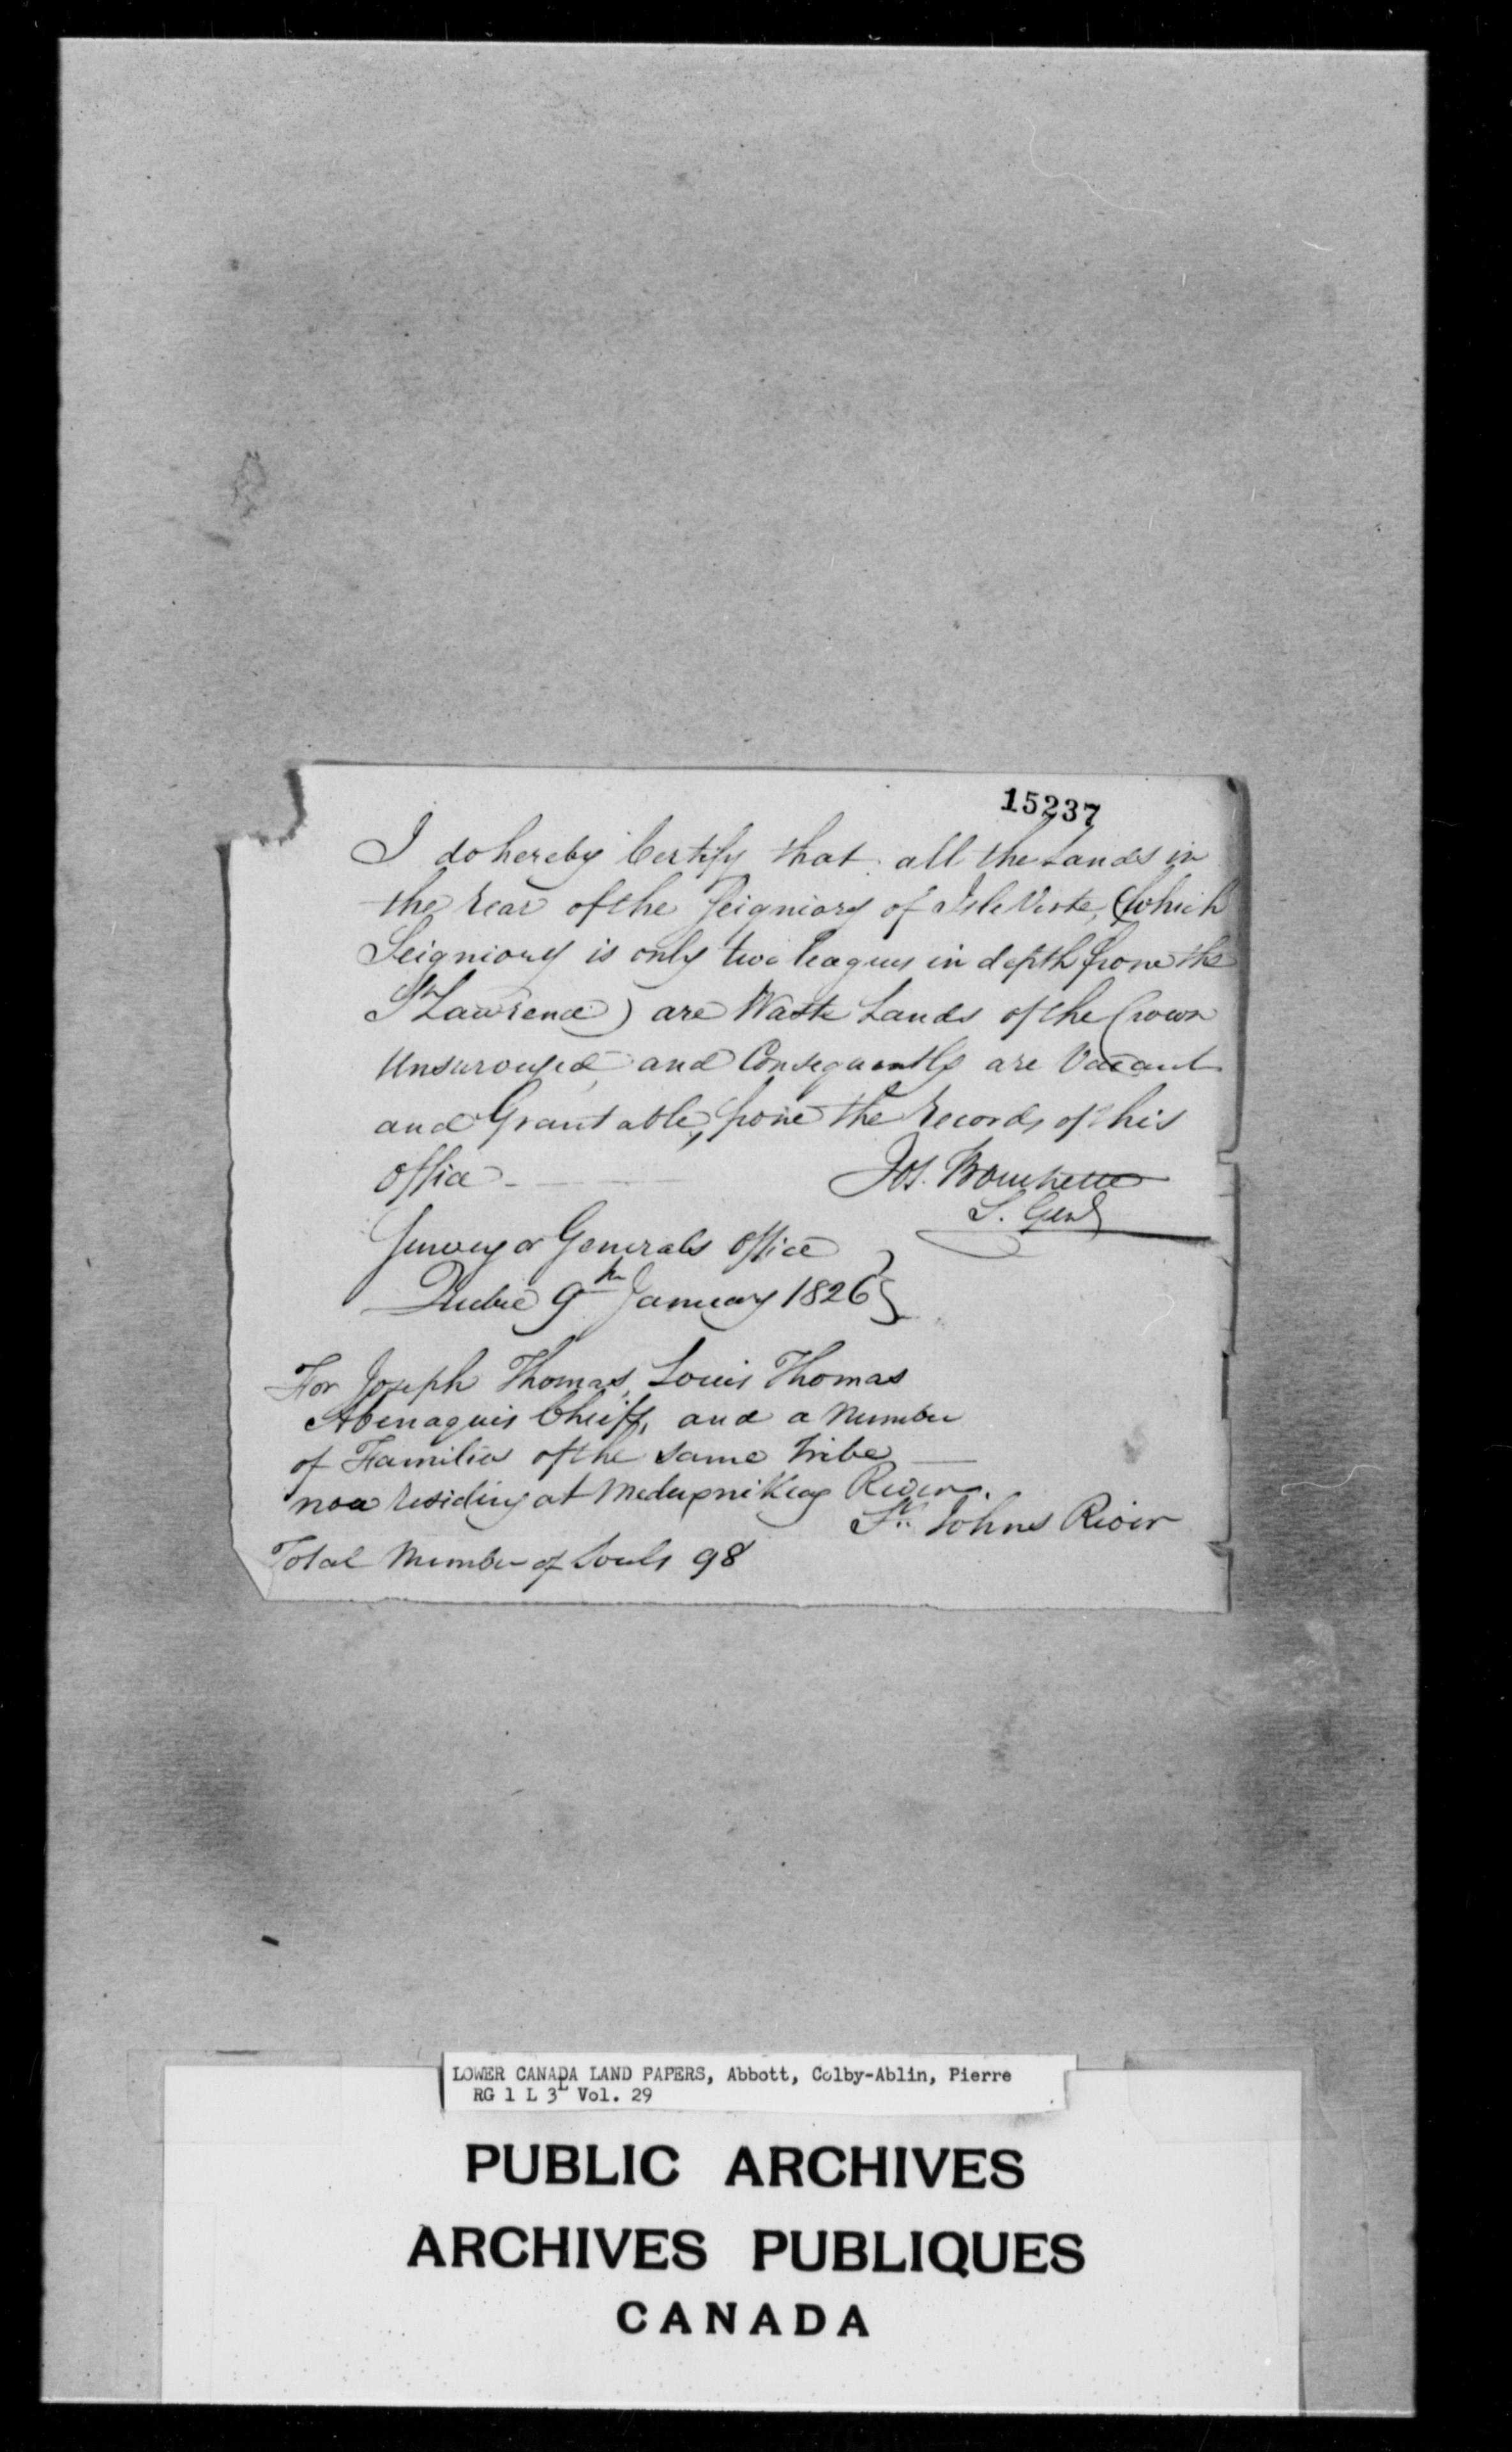 15237
I do hereby Certify that all the Lands in
the rear of the Seigniory of Isle Verte, (which
Seigniory is only two leagues in depth from the
St Lawrence) are Waste Lands of the Crown
Unsurveyed, and Consequently are Vacant
and Grantable, from the records of this
office -
Jos. Bouchette
S. Genl
Surveyor Generals Office
Quebec 9th January 1826
For Joseph Thomas, Louis Thomas
Abenaquis Chiefs, and a number
of Families of the same tribe
now residing at River.
St. Johns River
Total Number of Souls 98
LOWER CANADA LAND PAPERS, Abbott, Colby-Ablin, Pierre
RG 1 L 3L Vol. 29
PUBLIC ARCHIVES
ARCHIVES PUBLIQUES
CANADA